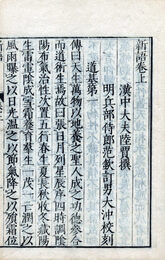 新語卷上
漢中大夫陸賈撰
明兵部侍郎范欽訂男大沖校刻
道基第一
傳曰天生萬物以地養之聖人成之功德參合
而道術生焉故曰張日月列星辰序四時調陰
陽布氣治性次置五行春生夏長秋收冬藏陽
生雷電陰成雪霜養育羣生一茂一亡潤之以
風雨曝之以日光溫之以節氣降之以殞霜位